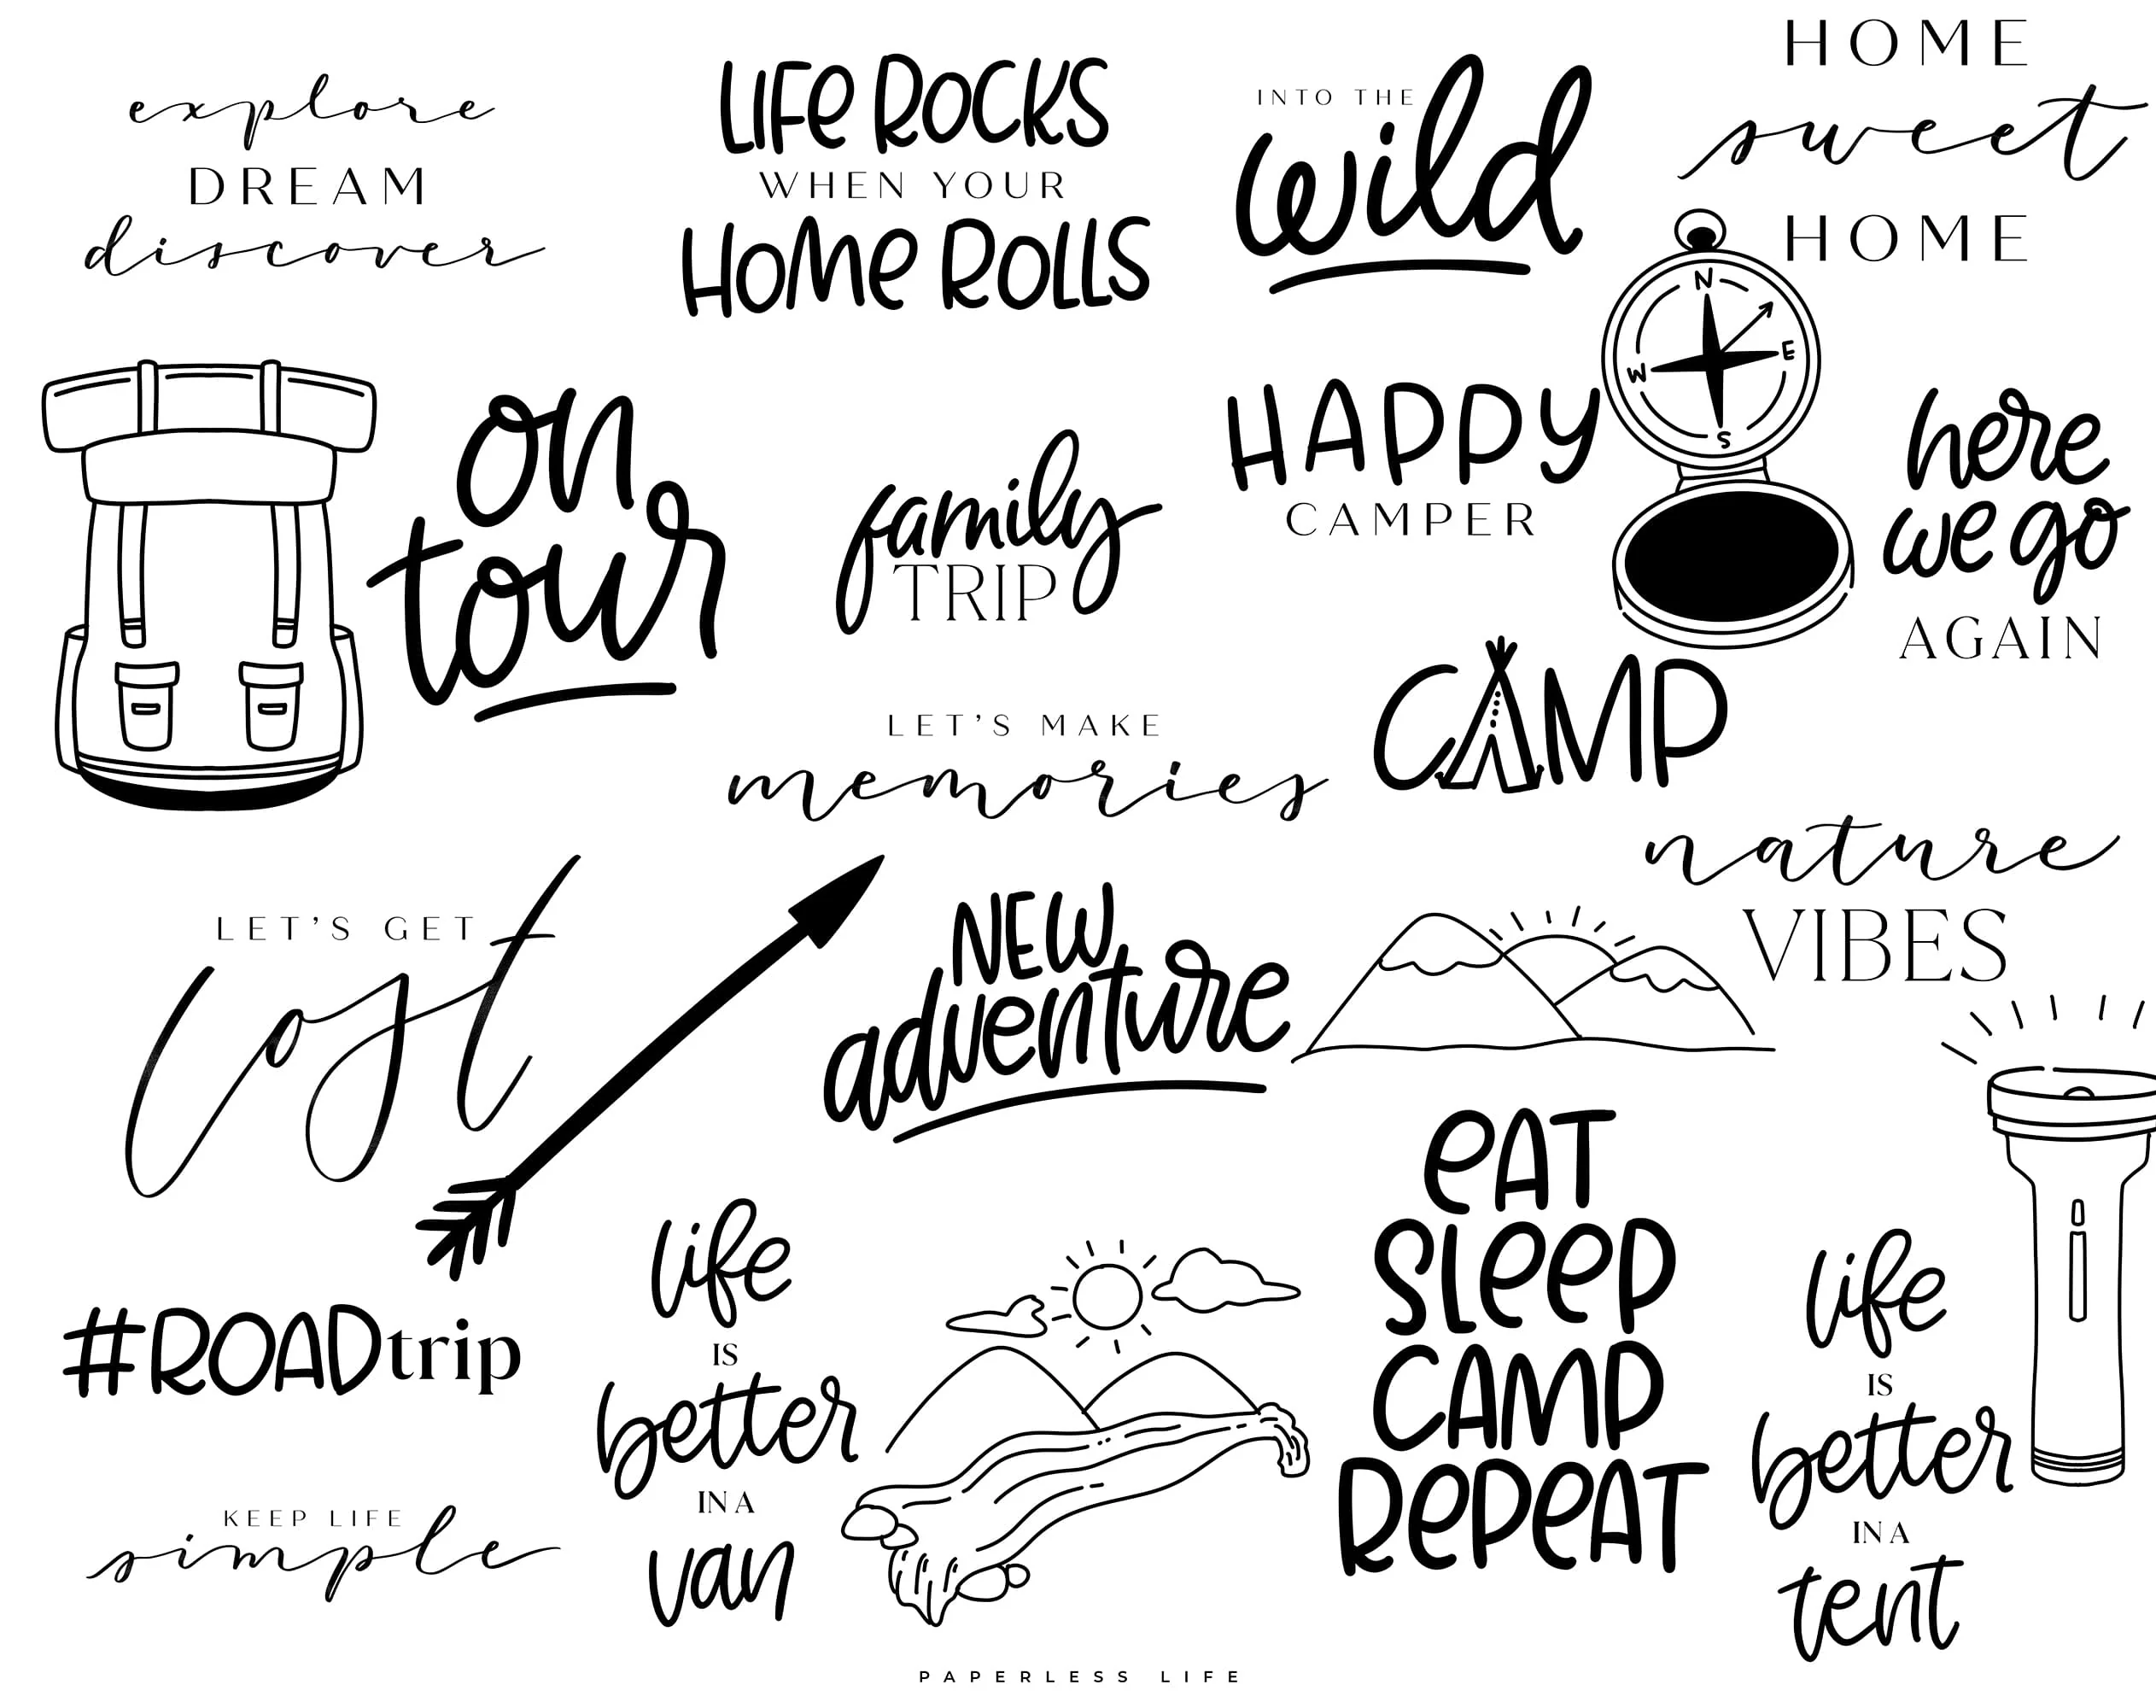 explore
DREAM
discover
LIFe ROCKS
WHEN YOUR
HOMe ROLLS
INTO THE
wild
HOME
sweet
HOME
N
E
S
W
on
tour
family
TRIP
HAPPY
CAMPER
here
we go
AGAIN
LET'S MAKE
memories
CAMP
nature
VIBES
LET'S GET
lost
NEW
adventure
#ROADtrip
KEEP LIFE
simple
life
IS
better
IN A
van
eAT
SLeeP
CAMP
RePeAT
life
IS
better
IN A
tent
PAPERLESS LIFE